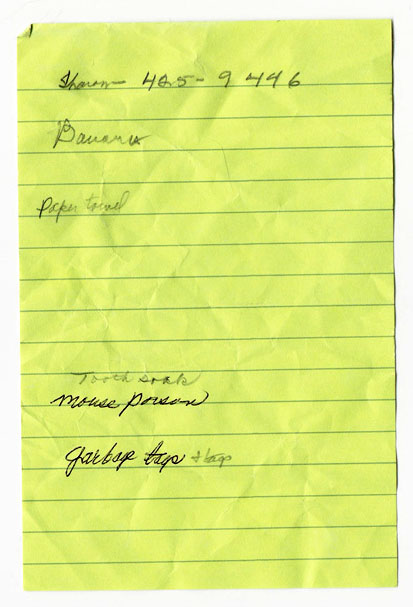 Sharon - 425-9446
Banana
paper towel
Tooth soak
mouse poison
garbage tags